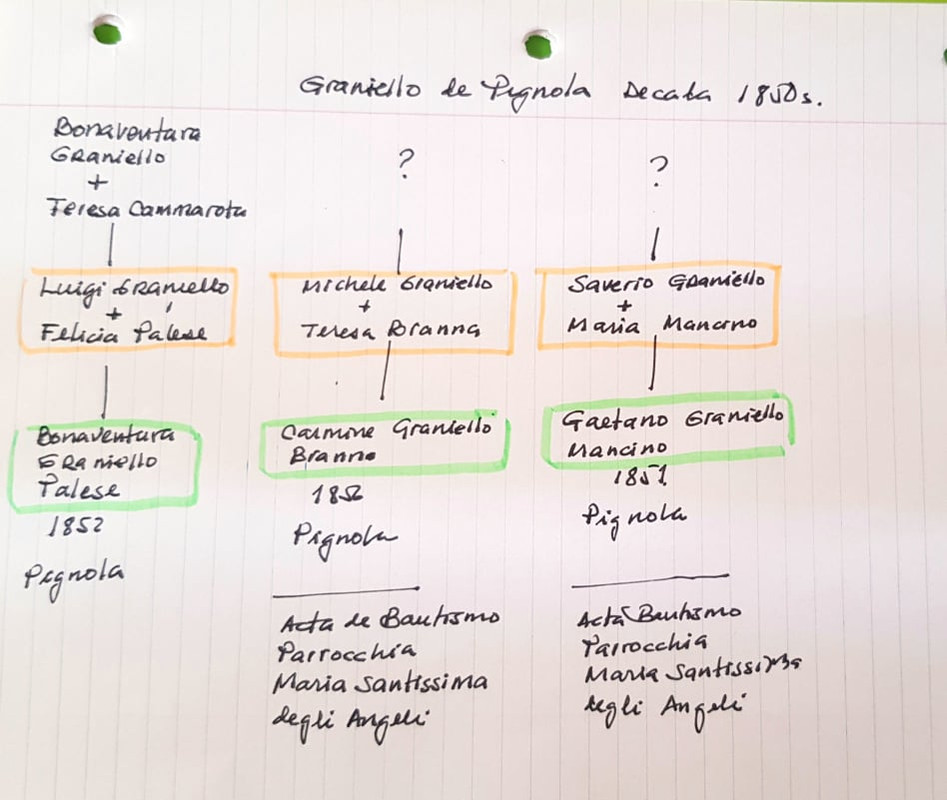 Graniello de Pignola Decada 1850s.
Bonaventura
Graniello
+
Teresa Cammarota
Luigi Graniello
+
Felicia Palese
Bonaventura
Graniello
Palese
1852
Pignola
?
Michele Graniello
+
Teresa Branna
Carmine Graniello
Branna
Pignola
Acta de Bautismo
Parrocchia
Maria Santissima
degli Angeli
?
Saverio Graniello
+
Maria Mancino
Gaetano Graniello
Mancino
1851
Pignola
Acta Bautismo
Parrocchia
Maria Santissima
degli Angeli